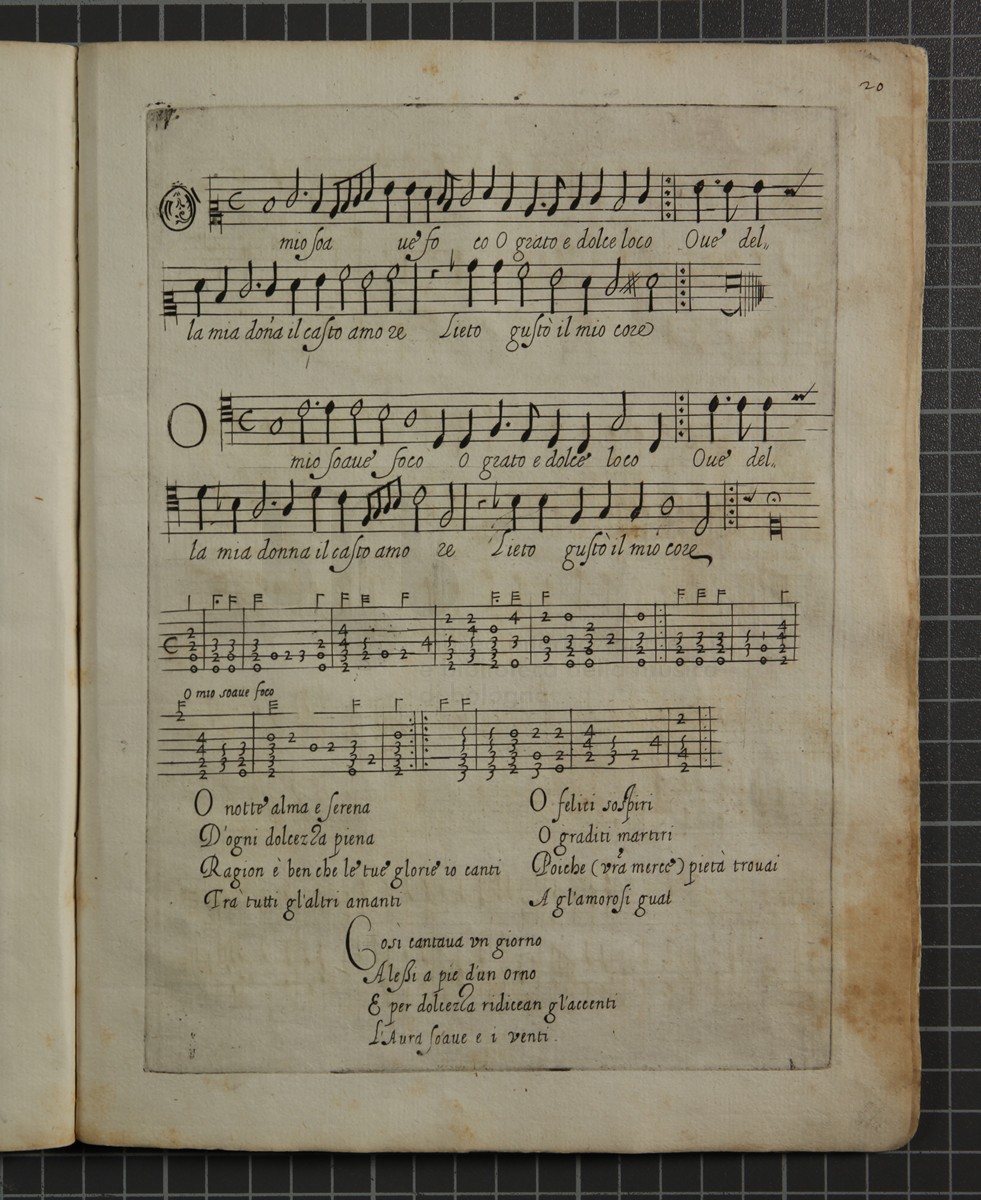 20
O
mio soa ue fo co O grato e dolce loco Oue del
la mia dona il casto amo re Lieto gustò il mio core
O
mio soaue foco O grato e dolce loco Oue del
la mia donna il casto amo re Lieto gustò il mio core
O mio soaue foco
O notte alma e serena
D'ogni dolcezza piena
Ragion è ben che le tue glorie io canti
Tra tutti gl'altri amanti
O felici sospiri
O graditi martiri
Poiche (vra merce) pietà trouai
A gl'amorosi guai
Cosi cantaua vn giorno
Alessi a pie d'un orno
E per dolcezza ridicean gl'accenti
L'Aura soaue e i venti.